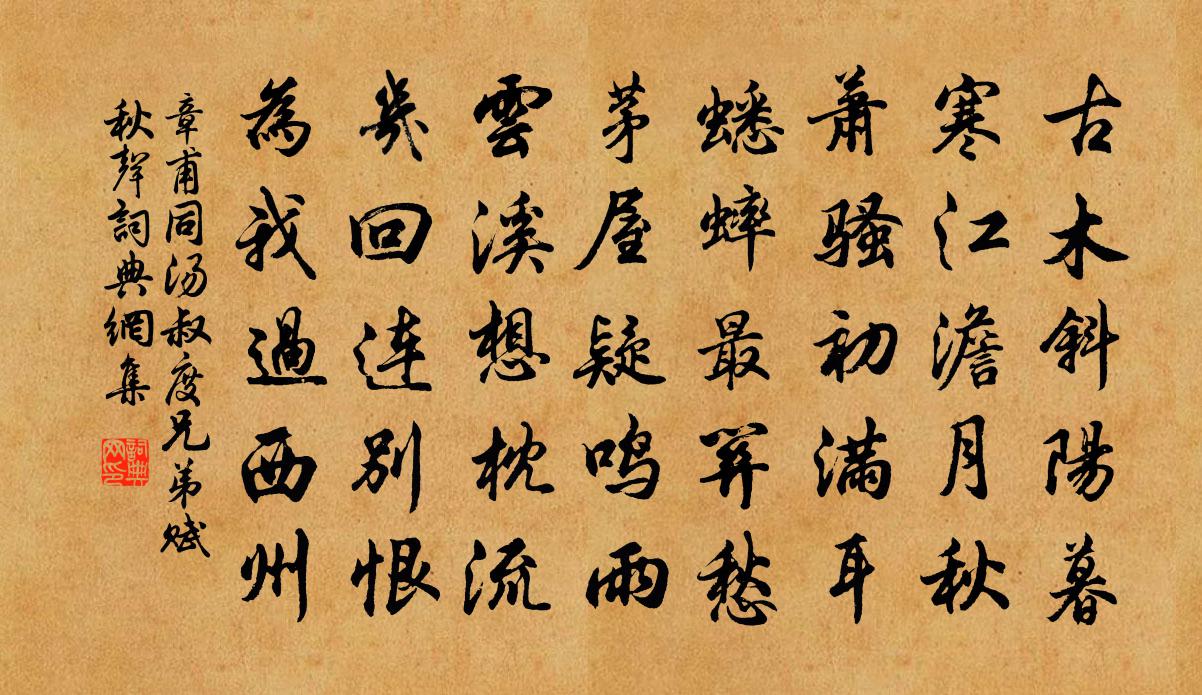 古木斜陽暮
寒江澹月秋
萧騷初滿耳
蟋蟀最算愁
茅屋疑鸣雨
雲溪想枕流
幾回连別恨
為我過西州
章甫同汤叔度兄弟赋
秋聲詞典網集
詞典网印